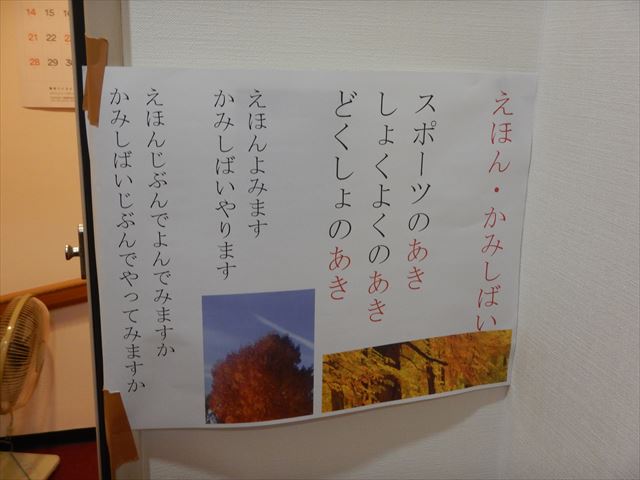 えほん・かみしばい
スポーツのあき
しょくよくのあき
どくしょのあき
えほんよみます
かみしばいやります
えほんじぶんでよんでみますか
かみしばいじぶんでやってみますか
14 15
21 22 23
28 29 30